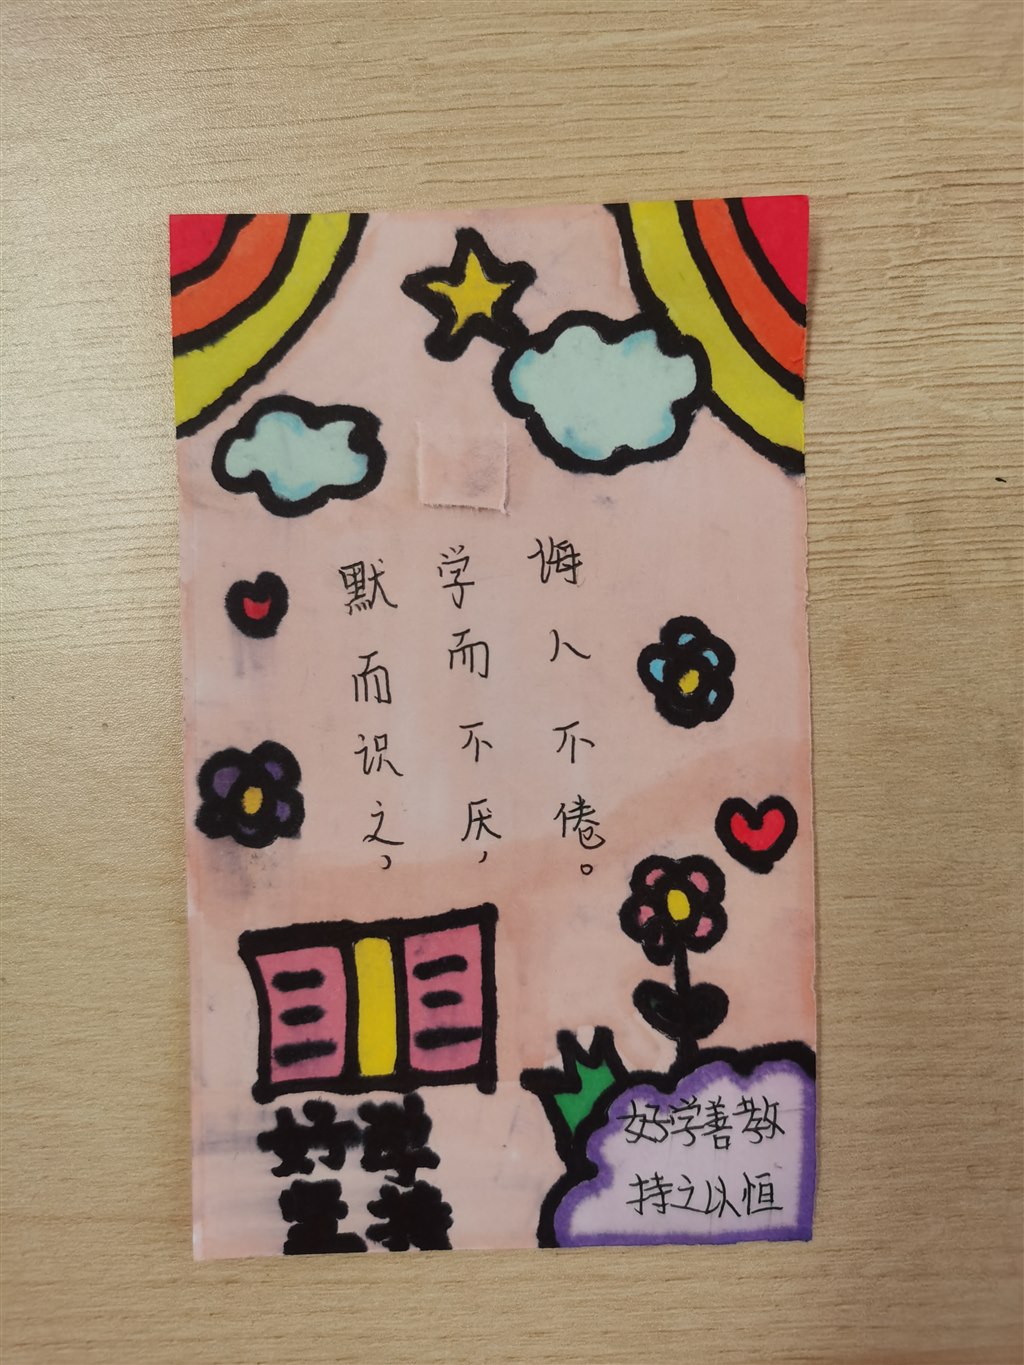 默而识之，
学而不厌，
诲人不倦。
好学
好学善教
持之以恒